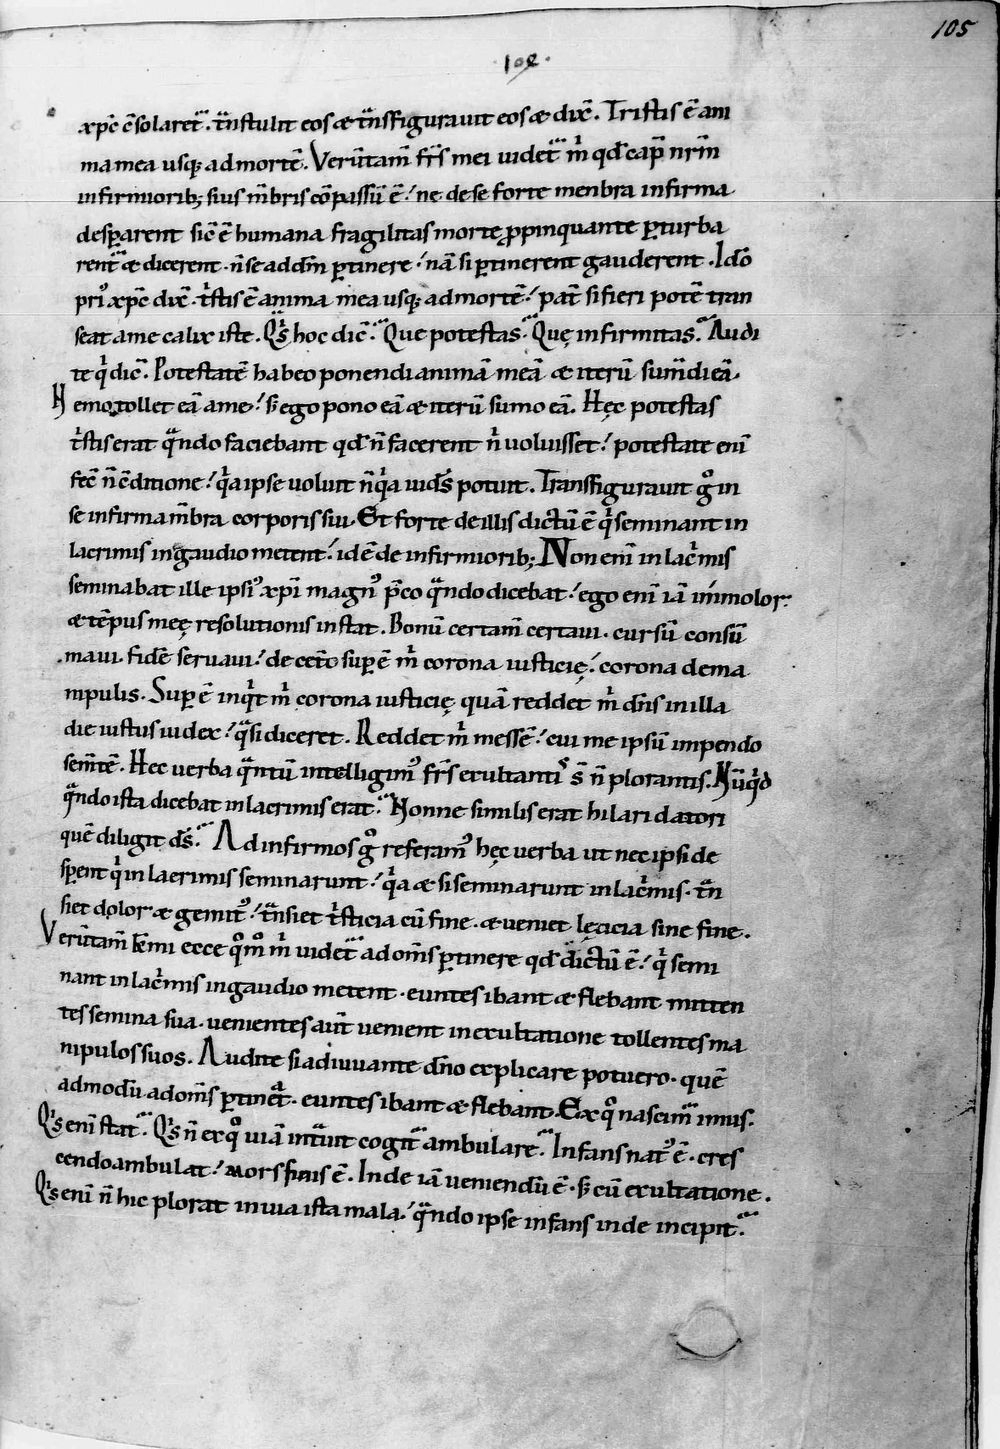 105
102
xp̄c c̄solaret᷑. t̄nstulit eos & t̄nsfigurauit eos & dix̄. Tristis ē ani
ma mea usq; ad mortē. Verūtam̄ fr̄s mei uidet᷑ m̄ qd̄ cap̄ nrm̄
infirmiorib; suis m̄bris cōpassū ē. ne de se forte menbra infirma
desꝑarent sic̄ ē humana fragilitas morte ꝓpinquante ꝑturba
rent᷑ & dicerent. n̄ se ad dm̄ ꝑtinere. nā si ꝑtinerent gauderent. Idō
pri᷒ xp̄c dix̄. tͥstis ē anima mea usq; ad mortē. pat̄ si fieri potē tran
seat a me calix iste. Qͥs hoc dic̄. Que potestas. Quę infirmitas. Audi
te qͥ dic̄. Potestatē habeo ponendi animā meā & iterū sum̄di eā.
Nemo tollet eā a me. sꝫ ego pono eā & iterū sumo eā. Hęc potestas
tͥstis erat qᷓndo faciebant qd̄ n̄ facerent nͥ uoluisset. potestate eni᷒
fec̄ n̄ c̄ditione. qͥa ipse uoluit n̄ qͥa iud̄s potuit. Transfigurauit gͦ in
se infirma m̄bra corporis sui. Et forte de illis dictū ē qͥ seminant in
lacrimis in gaudio metent. idē de infirmiorib; Non eni᷒ in lacͥmis
seminabat ille ipsi᷒ xp̄i magn᷒ p̄co qᷓndo dicebat. ego eni᷒ iā immolor.
& tēpus meę resolutionis instat. Bonū certam̄ certaui. cursū consū
maui. fidē seruaui. de cet̄o sup ē mͥ corona iusticię. corona de ma
nipulis. Sup ē inqͥt mͥ corona iusticię quā reddet mͥ dn̄s in illa
die iustus iudex. qᷓsi diceret. Reddet mͥ messē. cui me ipsū impendo
sem̄tē. Hec uerba qᷓntū intelligim᷒ fr̄s exultantiˢ s̄ n̄ plorantis. Nūqͥd
qᷓndo ista dicebat in lacrimis erat. Nonne similis erat hilari datori
quē diligit ds̄. Ad infirmos gͦ referam᷒ hęc uerba ut nec ipsi de
sꝑent qͥ in lacrimis seminarunt. qͥa & si seminarunt in lacͥmis. tᷓn
siet dolor & gemit᷒. tᷓnsiet tͥsticia cū fine. & ueniet lęticia sine fine.
Verūtam̄ km̄i ecce qͦmͦ mͥ uidet᷑ ad om̄s ꝑtinere qd̄ dictū ē. qͥ semi
nant in lacͥmis in gaudio metent. euntes ibant & flebant mitten
tes semina sua. uenientes aut̄ uenient in exultatione tollentes ma
nipulos suos. Audite si adiuuante dn̄o explicare potuero. quē
admodū ad om̄s ꝑtinet. euntes ibant & flebant. Ex qͦ nascimur imus.
Qͥs eni᷒ stat. Qͥs n̄ ex qͦ uiā intᷓuit cogit᷑ ambulare. Infans nat᷒ ē. cres
cendo ambulat. mors finis ē. Inde iā ueniendū ē. sꝫ cū exultatione.
Qͥs eni᷒ n̄ hic plorat in uia ista mala. qᷓndo ipse infans inde incipit.